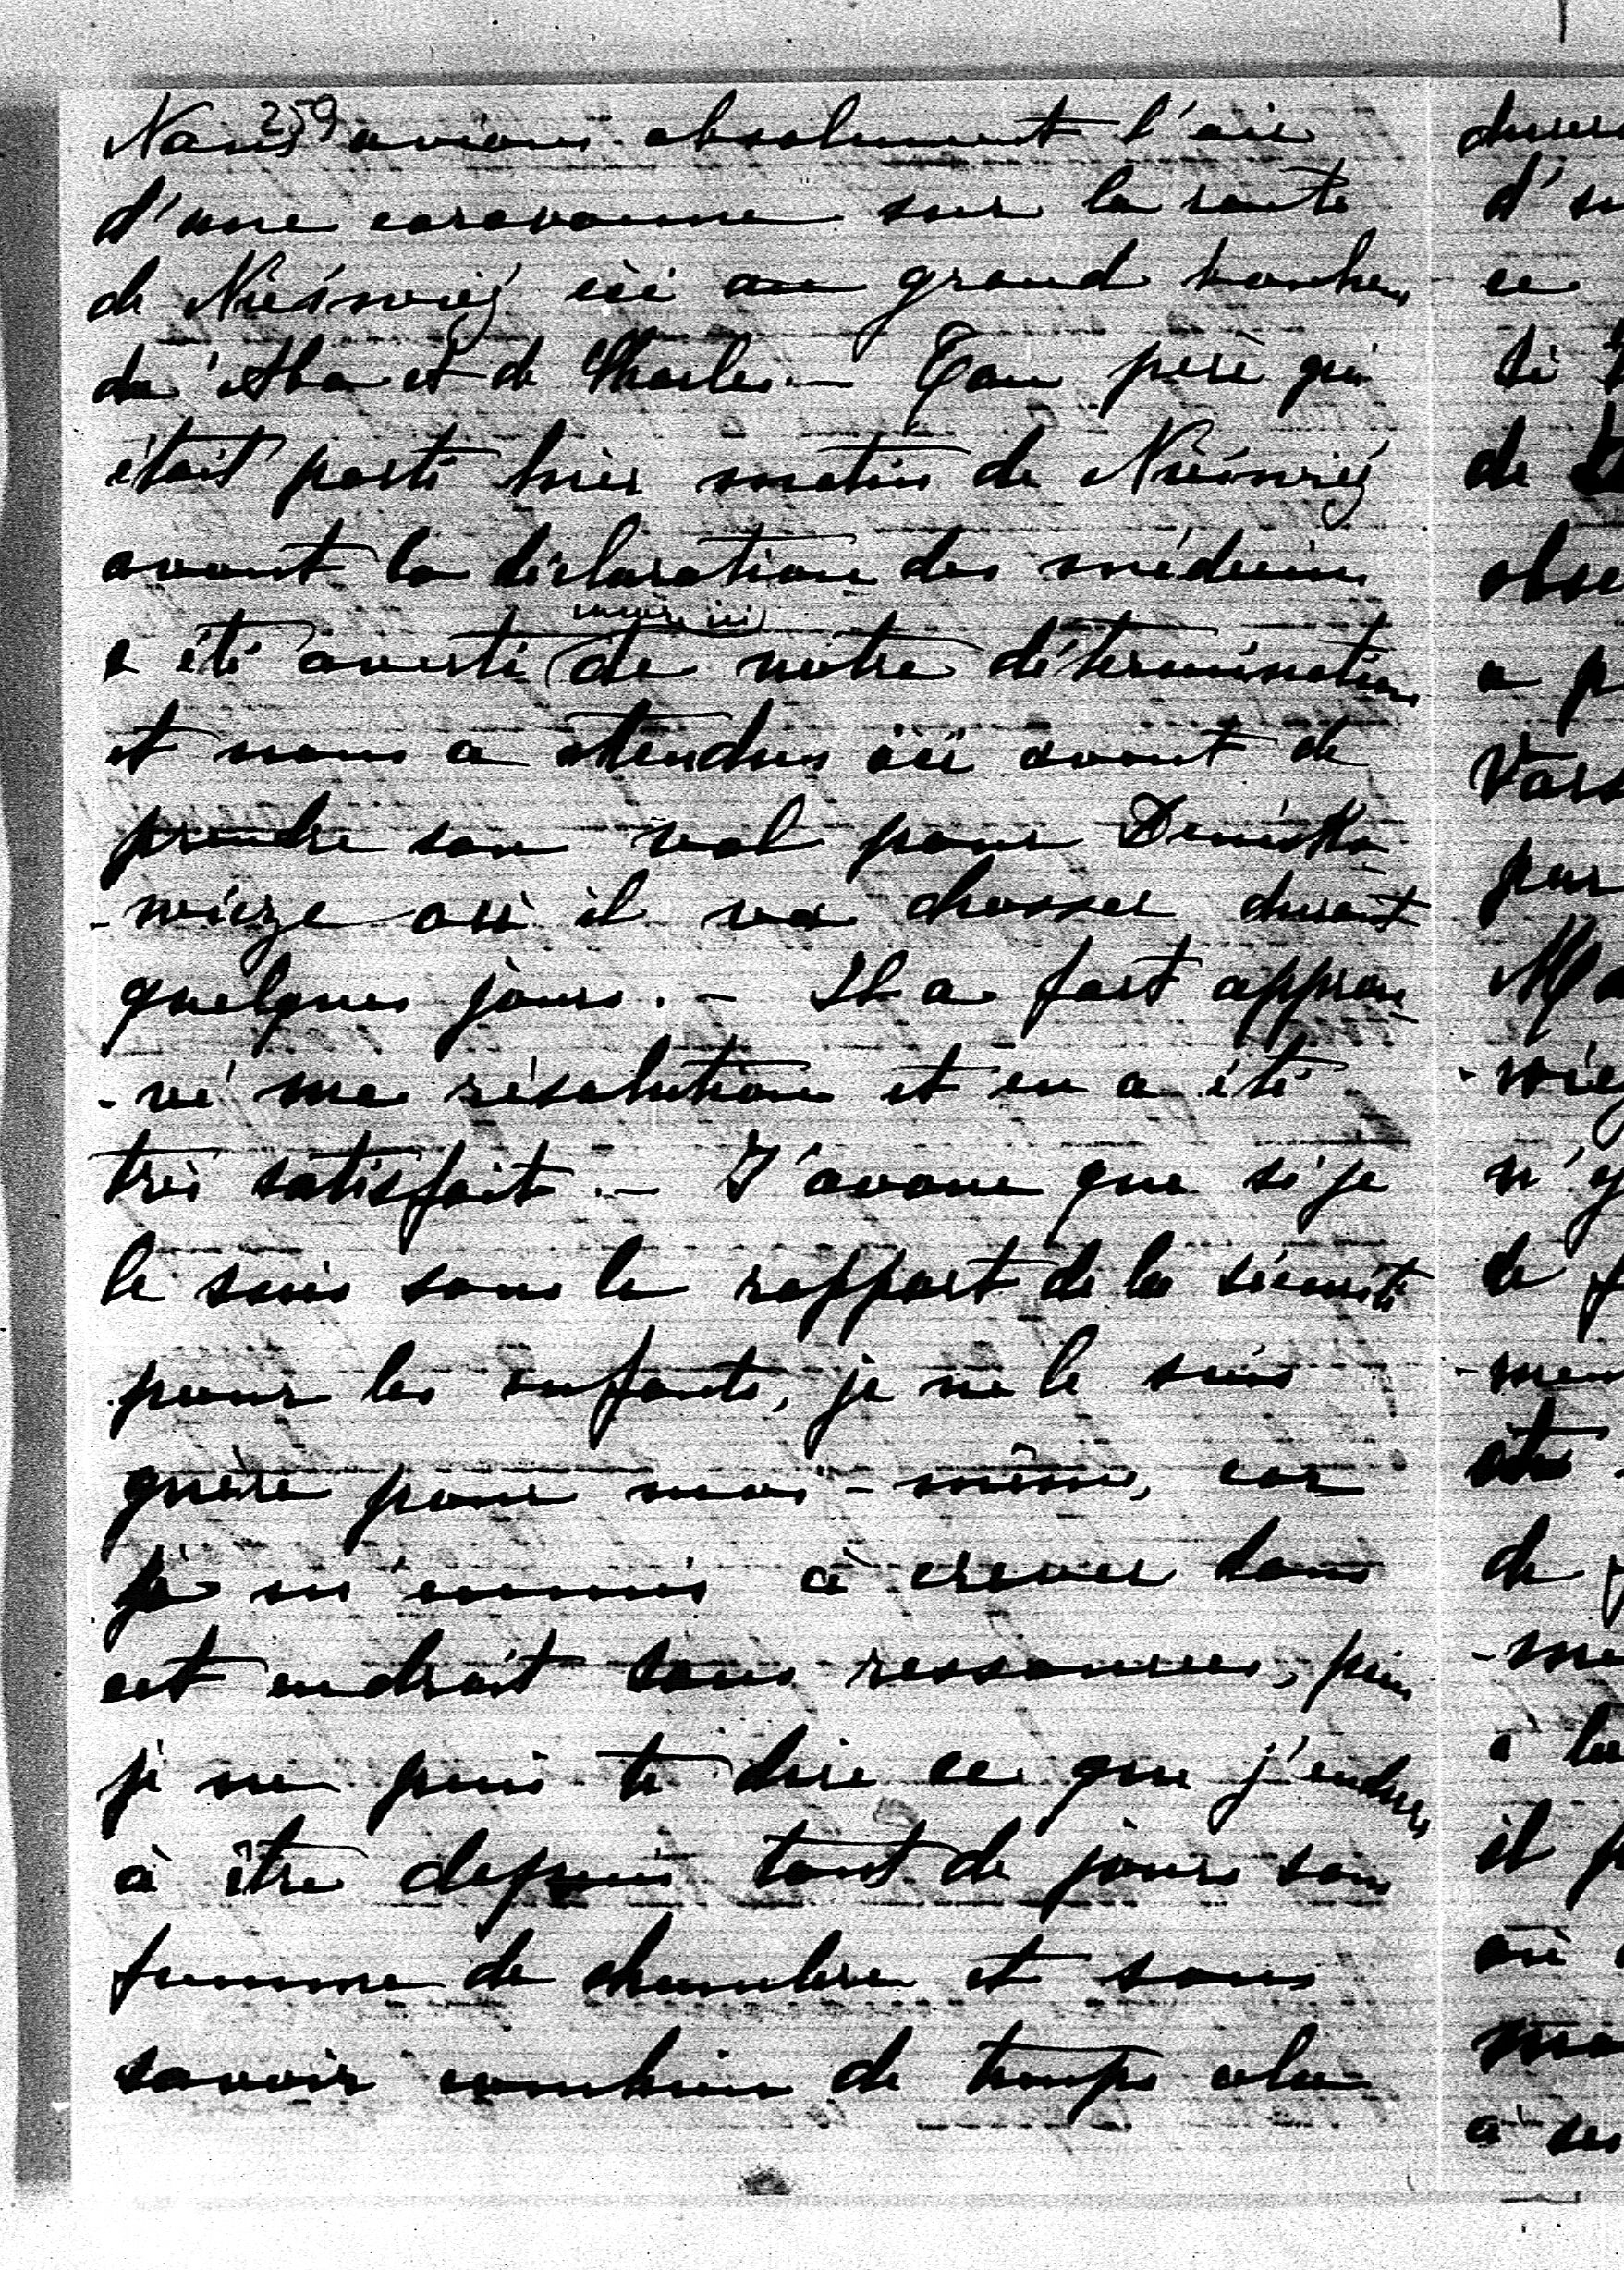 259
Nous avions absolument l'air
d'une caravanne sur la route
de Nieśwież ici au grand bonheur
de Aba et de Charles. — Ton père qui
était parti hier matin de Nieśwież
avant la déclaration des médecins
a été averti de notre détermination
et nous a attendus ici avant de
prendre son vol pour Denisko
-wicze où il va chasser durant
quelques jours. — Il a fort approu
-vé ma résolution et en a été
très satisfait. — J'avoue que si je
le suis sous le rapport de la sécurité
pour les enfants, je ne le suis
guère pour moi-même, car
je m'ennuis à crever dans
cet endroit sans ressources, puis
je ne puis te dire ce que j'endure
à être depuis tant de jours sans
femme de chambre et sans
savoir combien de temps cela
d'un
ce
si
de
obse
a
Vars
par
Ma
n'y
de
-men
de
à la
il
où
à ses